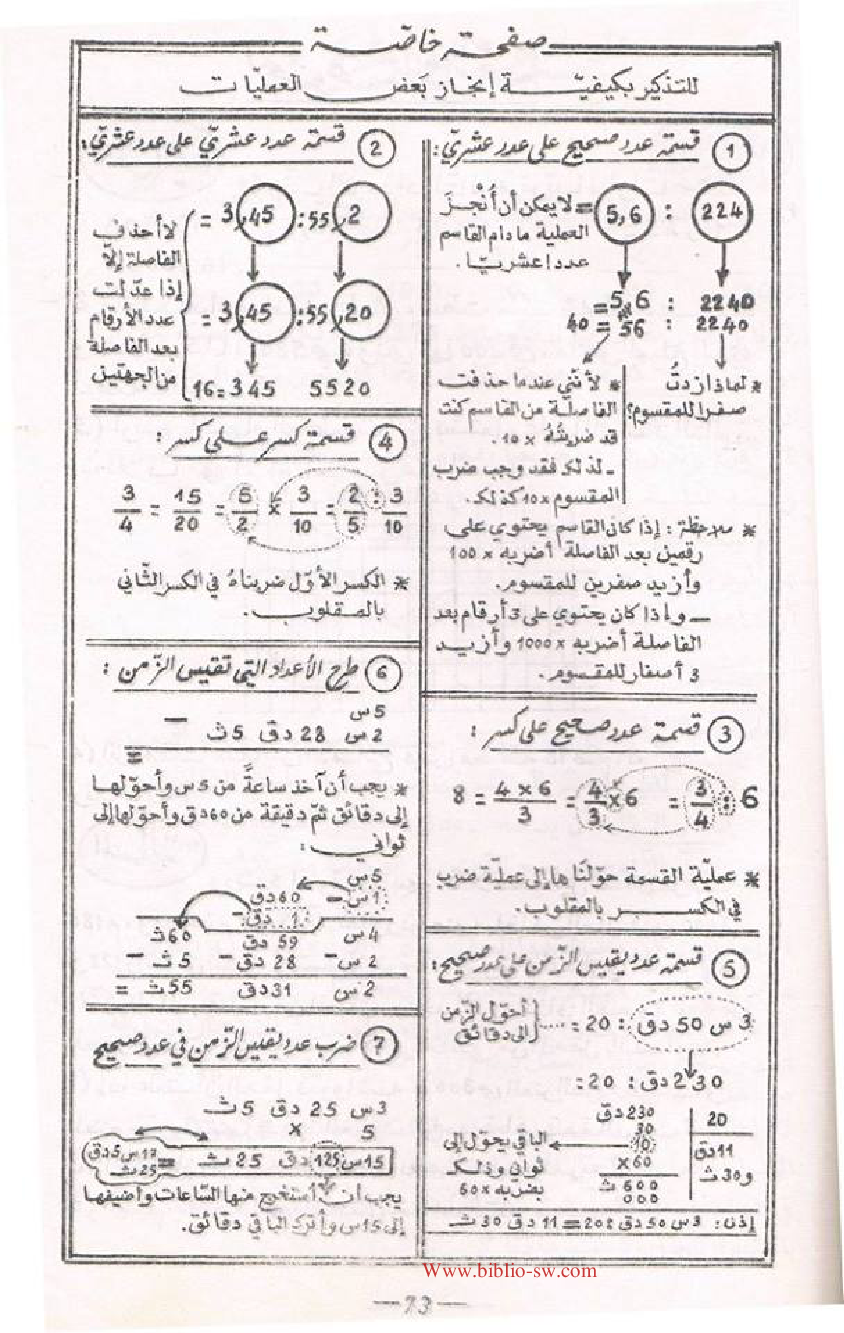 صفحة خاصّة
للتذكير بكيفيّة إنجاز بَعض العمليّات
① قسمة عدد صحيح على عدد عشريّ:
224 : 5,6 = لا يمكن أن أُنْجِزَ
العملية ما دام القاسم
عددا عشريّا.
2240 : 5,6 =
2240 : 56 = 40
* لماذا زدتُ
صفرا للمقسوم؟
* لأنّني عندما حذفت
الفاصلة من القاسم كنت
قد ضربتُهُ × 10.
ـ لذلك فقد وجب ضرب
المقسوم × 10 كذلك.
* ملاحظة : إذا كان القاسم يحتوي على
رقمين بعد الفاصلة أضربه × 100
وأزيد صفرين للمقسوم.
ـ وإذا كان يحتوي على 3 أرقام بعد
الفاصلة أضربه × 1000 وأزيد
3 أصفار للمقسوم.
② قسمة عدد عشريّ على عدد عشريّ:
55,2 : 3,45 =
55,20 : 3,45 =
5520 345 = 16
لا أحذف
الفاصلة إلاّ
إذا عدّلت
عدد الأرقام
بعد الفاصلة
من الجهتين
③ قسمة عدد صحيح على كسر :
6 : 3/4 = 6 × 4/3 = 4 × 6 / 3 = 8
* عمليّة القسمة حوّلنَاها إلى عمليّة ضرب
في الكسر بالمقلوب.
④ قسمة كسر على كسر :
3/10 : 2/5 = 3/10 × 5/2 = 15/20 = 3/4
* الكسر الأوّل ضربناهُ في الكسر الثّاني
بالمقلوب.
⑤ قسمة عدد يقيس الزّمن على عدد صحيح:
3 س 50 دق : 20 = ....
أحوّل الزّمن
إلى دقائق
230 دق : 20 :
230 دق
30
10
× 60
600 ث
000
20
11 دق
و 30 ث
الباقي يحوّل إلى
ثواني وذلك
بضربه × 60
إذن : 3 س 50 دق : 20 = 11 دق 30 ث
⑥ طرح الأعداد التي تقيس الزّمن :
5 س
−
2 س 28 دق 5 ث
=
* يجب أن آخذ ساعةً من 5 س وأحوّلها
إلى دقائق ثمّ دقيقة من 60 دق وأحوّلها إلى
ثواني :
5 س
− 1 س 60 دق
− 1 دق
4 س 59 دق 60 ث
− 2 س − 28 دق − 5 ث
2 س 31 دق 55 ث =
⑦ ضرب عدد يقيس الزّمن في عدد صحيح
3 س 25 دق 5 ث
× 5
15 س 125 دق 25 ث =
17 س 5 دق
25 ث
يجب أن أستخرج منها السّاعات وأضيفها
إلى 15 س وأترك الباقي دقائق.
www.biblio-sw.com
— 73 —